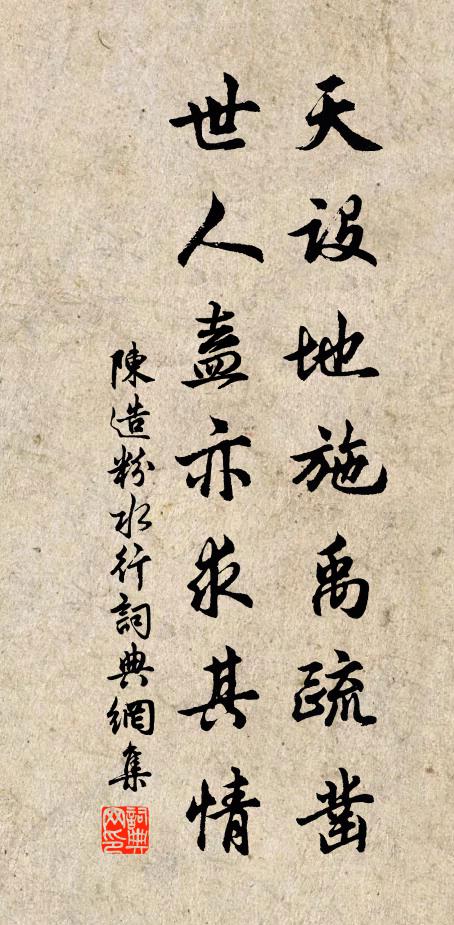 天設地施禹疏鑿
世人盍亦求其情
陳造粉水行詞典網集
詞典网印